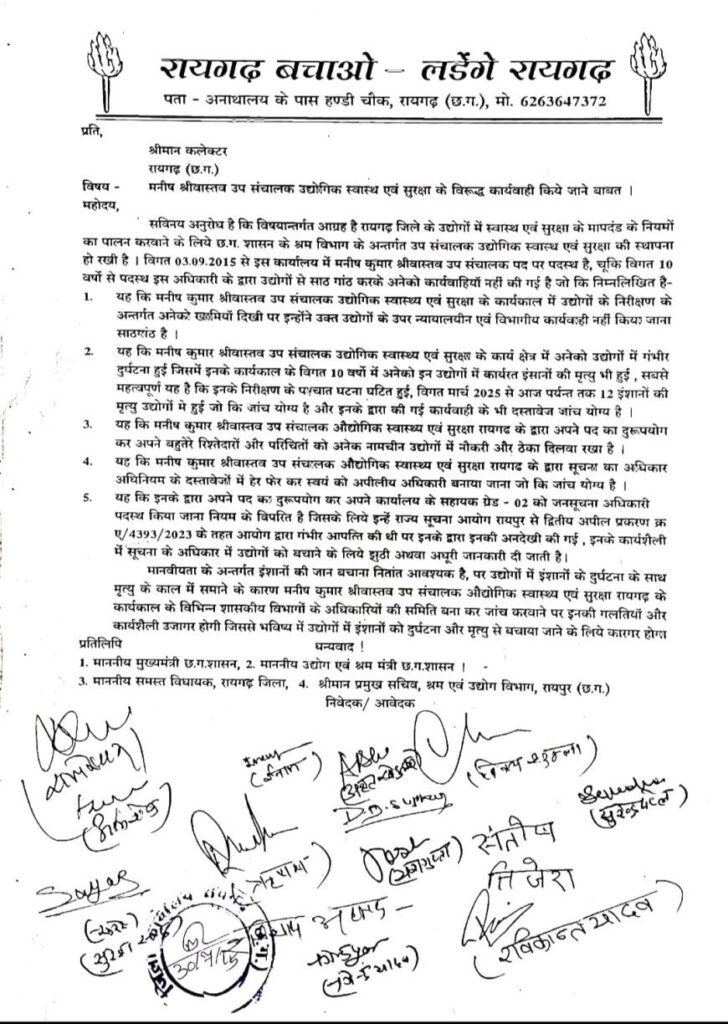 रायगढ़ बचाओ – लडेंगे रायगढ़
पता - अनाथालय के पास हण्डी चौक, रायगढ़ (छ.ग.), मो. 6263647372
प्रति,
श्रीमान कलेक्टर
रायगढ़ (छ.ग.)
विषय - मनीष श्रीवास्तव उप संचालक उद्योगिक स्वास्थ एवं सुरक्षा के विरूद्ध कार्यवाही किये जाने बाबत ।
महोदय,
सविनय अनुरोध है कि विषयान्तर्गत आग्रह है रायगढ़ जिले के उद्योगों में स्वास्थ एवं सुरक्षा के मापदंड के नियमों
का पालन करवाने के लिये छ.ग. शासन के श्रम विभाग के अन्तर्गत उप संचालक उद्योगिक स्वास्थ एवं सुरक्षा की स्थापना
हो रखी है । विगत 03.09.2015 से इस कार्यालय में मनीष कुमार श्रीवास्तव उप संचालक पद पर पदस्थ है, चूकि विगत 10
वर्षो से पदस्थ इस अधिकारी के द्वारा उद्योगों से साठ गांठ करके अनेको कार्यवाहियाँ नहीं की गई है जो कि निम्नलिखित है-
1. यह कि मनीष कुमार श्रीवास्तव उप संचालक उद्योगिक स्वास्थ्य एवं सुरक्षा के कार्यकाल में उद्योगों के निरीक्षण के
अन्तर्गत अनेको खामियाँ दिखी पर इन्होंने उक्त उद्योगों के उपर न्यायालयीन एवं विभागीय कार्यवाही नहीं किया जाना
साठगांठ है ।
2. यह कि मनीष कुमार श्रीवास्तव उप संचालक उद्योगिक स्वास्थ्य एवं सुरक्षा के कार्य क्षेत्र में अनेको उद्योगों में गंभीर
दुर्घटना हुई जिसमें इनके कार्यकाल के विगत 10 वर्षो में अनेको इन उद्योगों में कार्यरत इंसानों की मृत्यु भी हुई , सबसे
महत्वपूर्ण यह है कि इनके निरीक्षण के पश्चात घटना घटित हुई, विगत मार्च 2025 से आज पर्यन्त तक 12 इंशानों की
मृत्यु उद्योगों मे हुई जो कि जांच योग्य है और इनके द्वारा की गई कार्यवाही के भी दस्तावेज जांच योग्य है ।
3. यह कि मनीष कुमार श्रीवास्तव उप संचालक औद्योगिक स्वास्थ्य एवं सुरक्षा रायगढ के द्वारा अपने पद का दुरूपयोग
कर अपने बहुतेरे रिश्तेदारों और परिचितों को अनेक नामचीन उद्योगों में नौकरी और ठेका दिलवा रखा है ।
4. यह कि मनीष कुमार श्रीवास्तव उप संचालक औद्योगिक स्वास्थ्य एवं सुरक्षा रायगढ के द्वारा सूचना का अधिकार
अधिनियम के दस्तावेजो में हेर फेर कर स्वयं को अपीलीय अधिकारी बनाया जाना जो कि जांच योग्य है ।
5. यह कि इनके द्वारा अपने पद का दुरूपयोग कर अपने कार्यालय के सहायक ग्रेड - 02 को जनसूचना अधिकारी
पदस्थ किया जाना नियम के विपरित है जिसके लिये इन्हें राज्य सूचना आयोग रायपुर से द्वितीय अपील प्रकरण क्र
ए/4393/2023 के तहत आयोग द्वारा गंभीर आपत्ति की थी पर इनके द्वारा इनकी अनदेखी की गई , इनके कार्यशैली
में सूचना के अधिकार में उद्योगों को बचाने के लिये झुठी अथवा अधूरी जानकारी दी जाती है।
मानवीयता के अन्तर्गत इंशानों की जान बचाना नितांत आवश्यक है, पर उद्योगों में इंशानों के दुर्घटना के साथ
मृत्यु के काल में समाने के कारण मनीष कुमार श्रीवास्तव उप संचालक औद्योगिक स्वास्थ्य एवं सुरक्षा रायगढ़ के
कार्यकाल के विभिन्न शासकीय विभागों के अधिकारियों की समिति बना कर जांच करवाने पर इनकी गलतियाँ और
कार्यशैली उजागर होगी जिससे भविष्य में उद्योगों में इंशानों को दुर्घटना और मृत्यु से बचाया जाने के लिये कारगर होगा
प्रतिलिपि धन्यवाद !
1. माननीय मुख्यमंत्री छ.ग.शासन, 2. माननीय उद्योग एवं श्रम मंत्री छ.ग.शासन ।
3. माननीय समस्त विधायक, रायगढ़ जिला, 4. श्रीमान प्रमुख सचिव, श्रम एवं उद्योग विभाग, रायपुर (छ.ग.)
निवेदक/ आवेदक
संतीष
तिजेरा
(रविकान्त यादव)